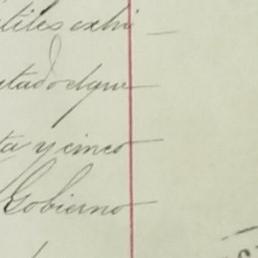 tiles exhi
tado que
ta y cinco
Gobierno